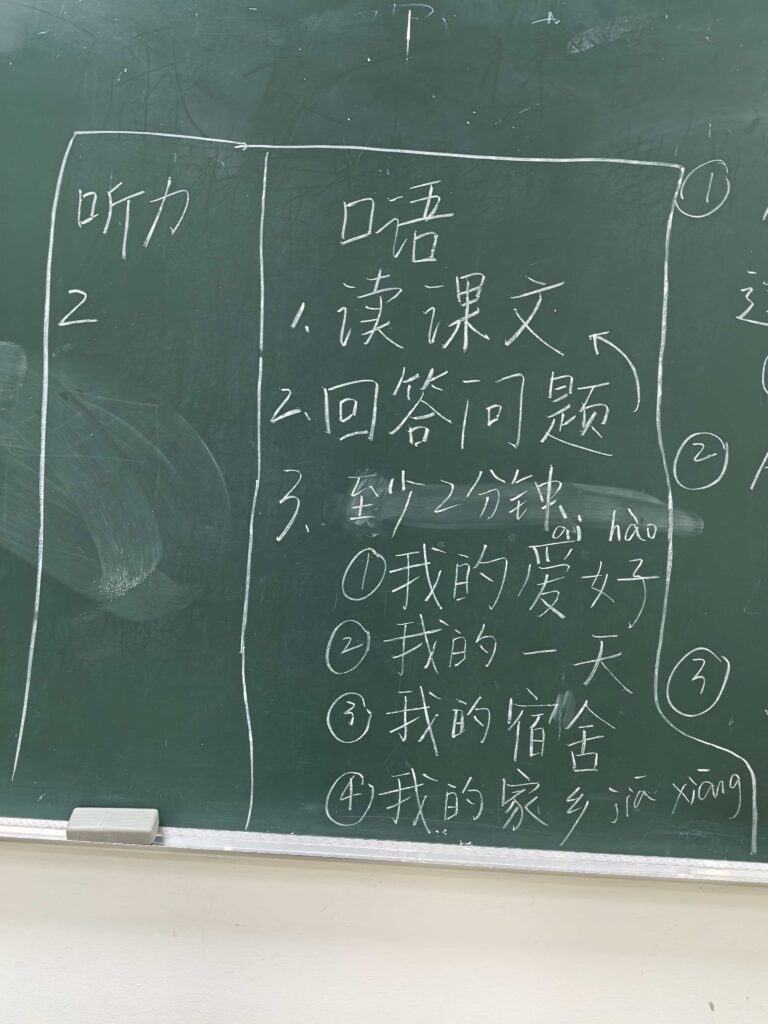 下
听力
2
口语
1. 读课文
2. 回答问题
3. 至少2分钟
ài hào
① 我的爱好
② 我的一天
③ 我的宿舍
④ 我的家乡 jiā xiāng
①
②
③